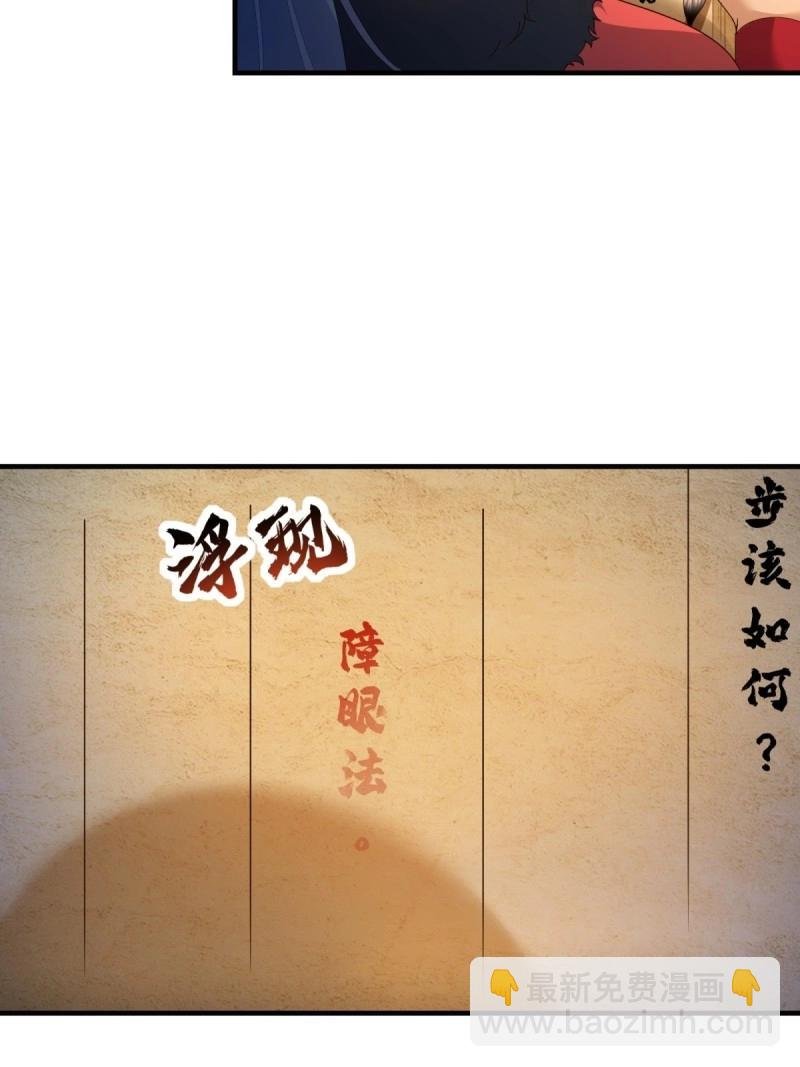 步该如何？
浮现
障眼法。
👇最新免费漫画👇
www.baozimh.com